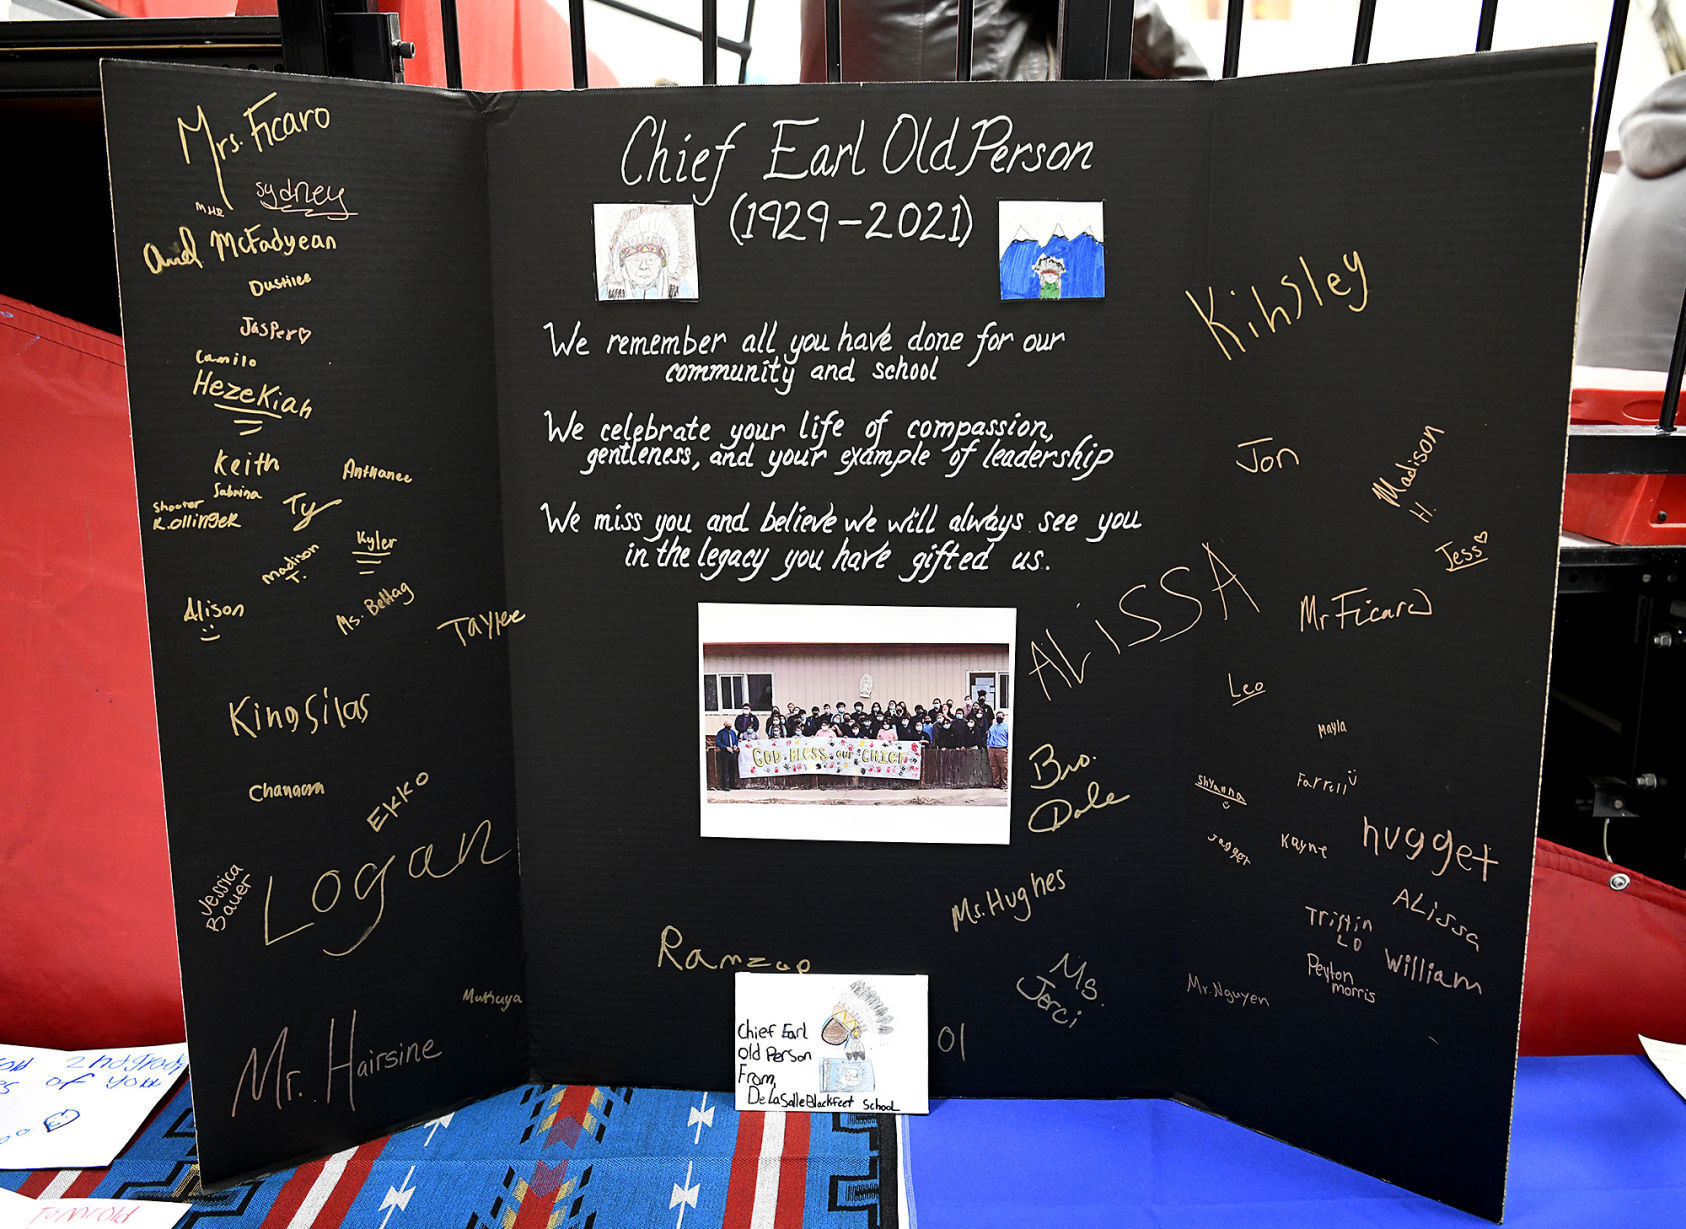 Chief Earl Old Person
(1929-2021)
We remember all you have done for our
community and school
We celebrate your life of compassion,
gentleness, and your example of leadership
We miss you and believe we will always see you
in the legacy you have gifted us.
GOD BLESS our CHIEF
Chief Earl
Old Person
From,
De La Salle Blackfeet School
Mrs. Ficaro
sydney
McFadyean
Jasper
Camilo
Hezekiah
Keith
Sabrina
Anthanee
Shooter
Ty
Kyler
Madison
T.
Alison
Ms. Beltag
Taylee
King Silas
Ekko
Logan
Jessica
Bauer
Mr. Hairsine
Ms. Hughes
Ms.
Jerci
Bro.
Dale
Kinsley
Jon
Madison
H.
Jess
ALiSSA
Mr Ficaro
Leo
Mayla
Shyanna
Farrell
Jagger
Kayne
nugget
ALissa
Tristin
LD
William
Peyton
morris
Mr. Nguyen
2nd grade
of you